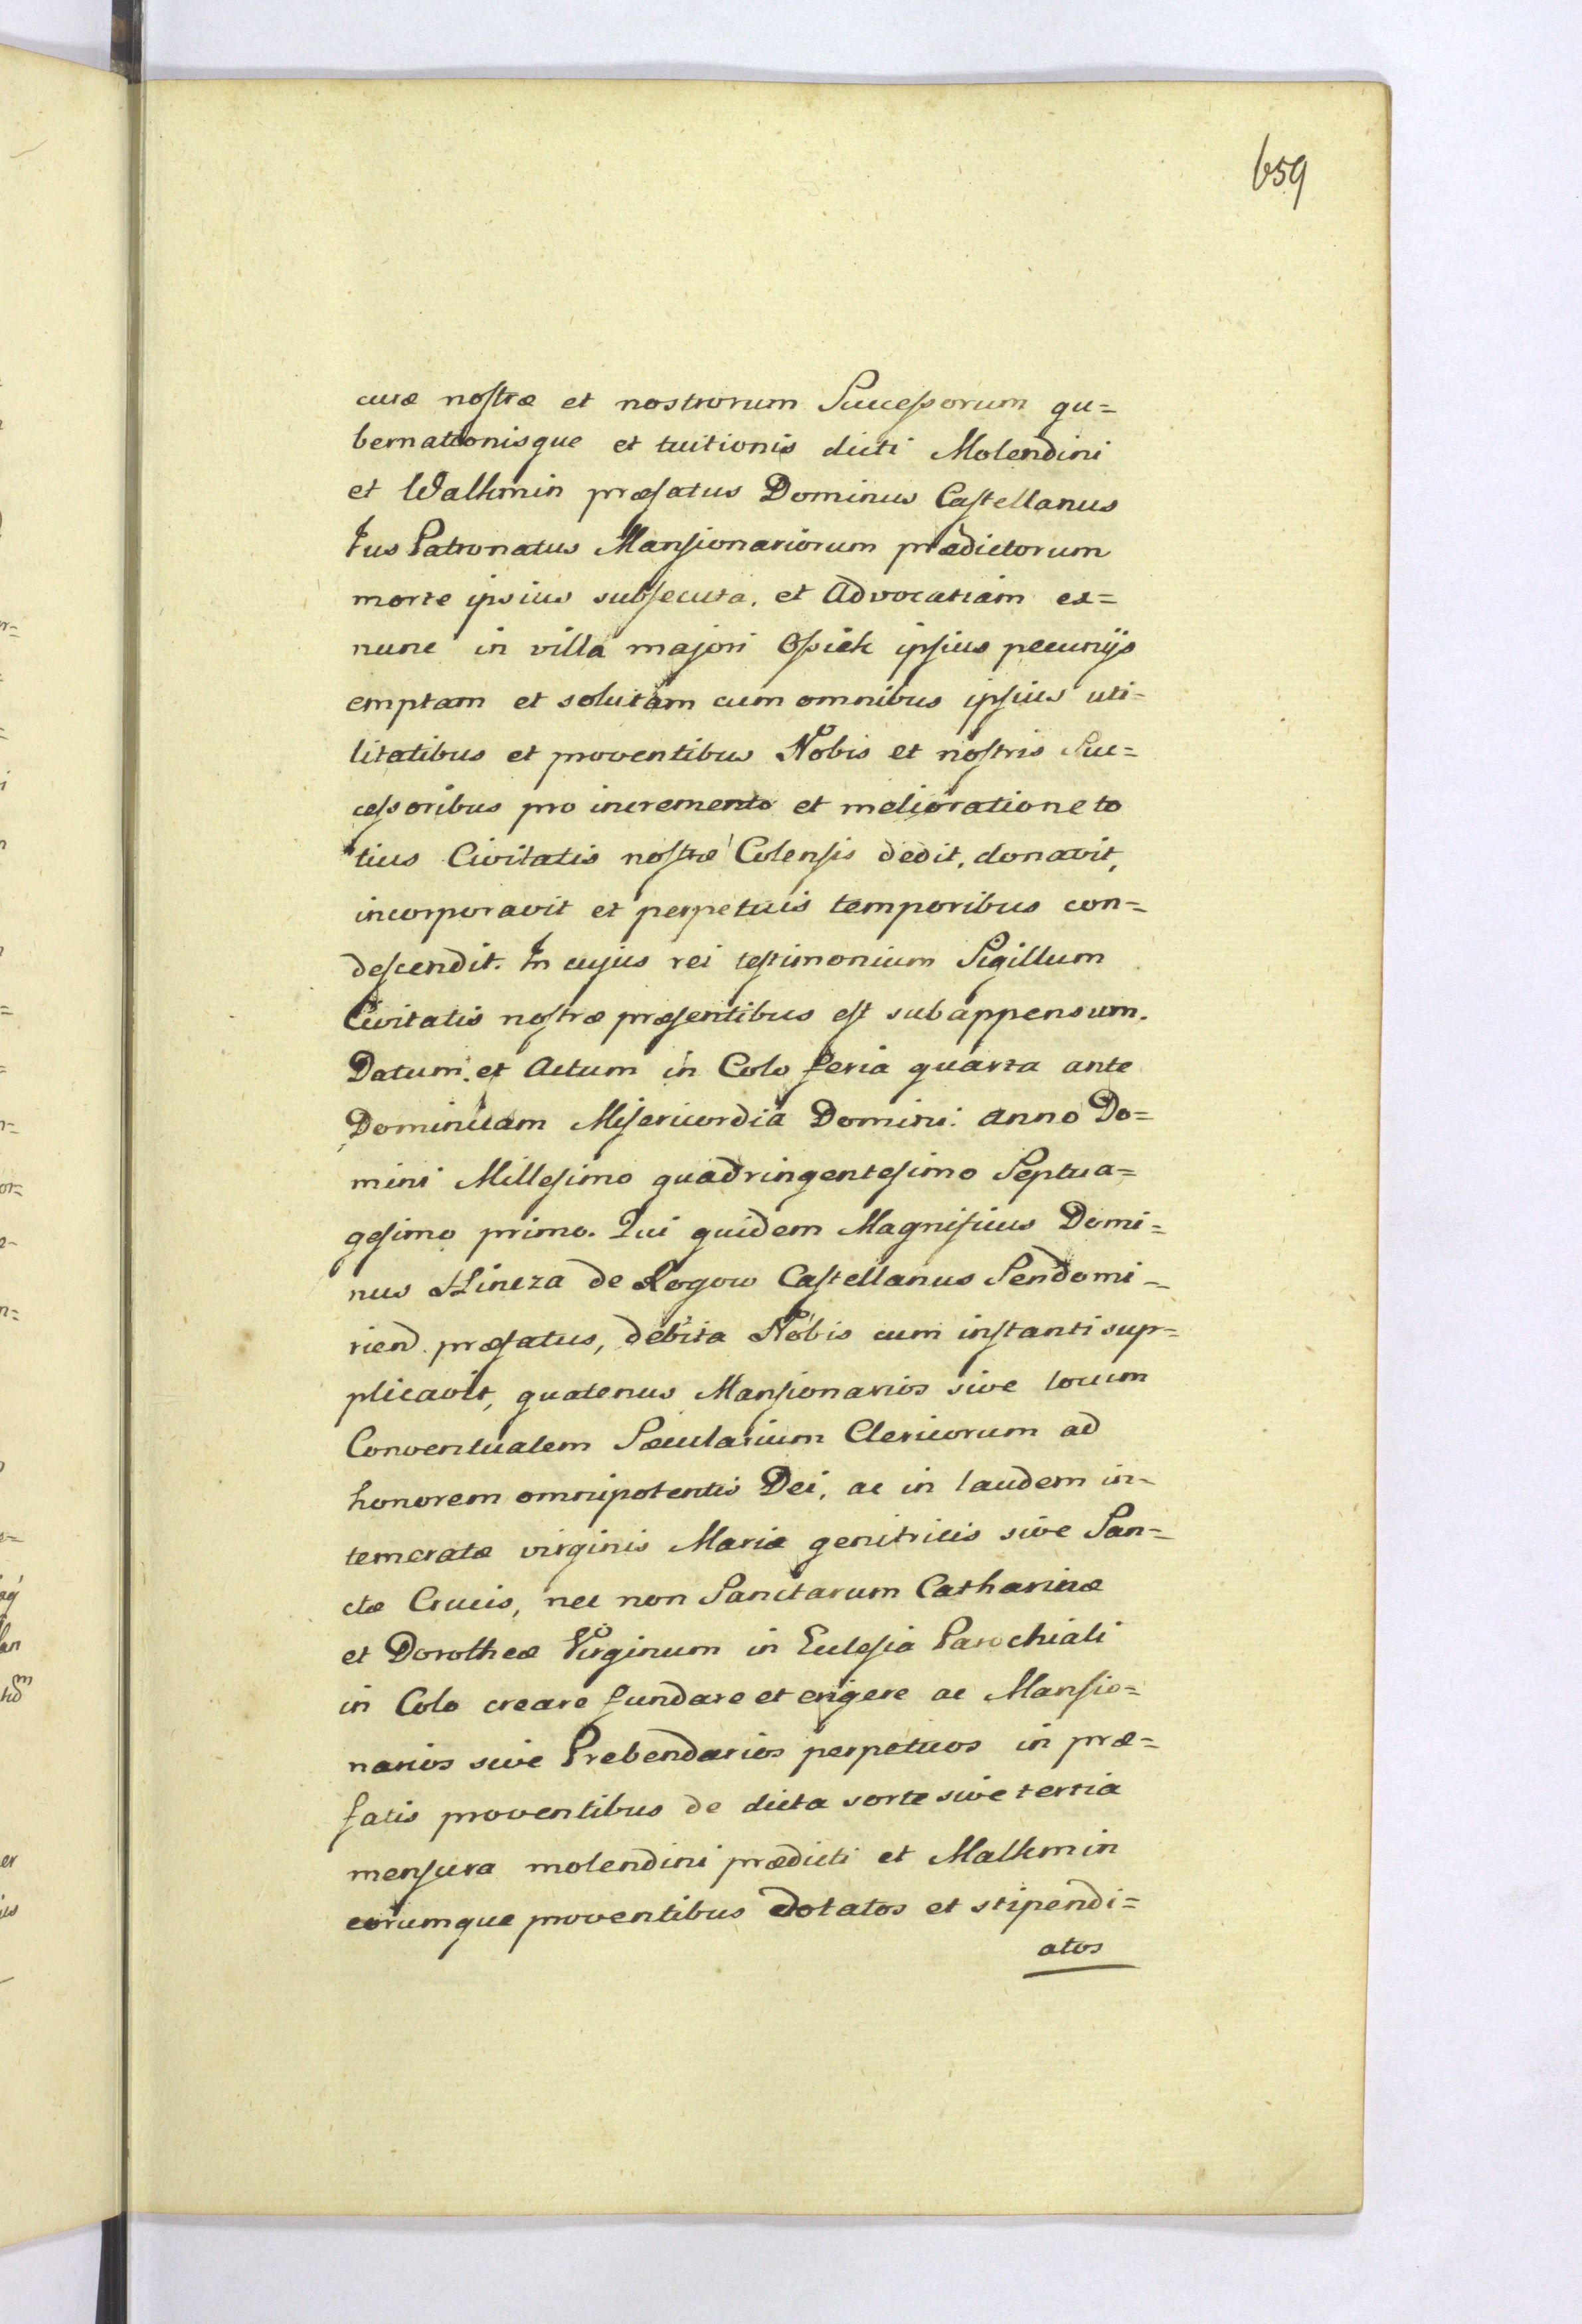 659
curæ nostræ et nostrorum Successorum gu=
bernationisque et tuitionis dicti Molendini
et Walkmin præfatus Dominus Castellanus
Jus Patronatus Mansionariorum prædictorum
morte ipsius subsecuta, et Advocatiam ex=
nunc in villa majori Osiek ipsius pecunijs
emptam et solutam cum omnibus ipsius uti=
litatibus et proventibus Nobis et nostris Suc=
cessoribus pro incremento et melioratione to
tius Civitatis nostræ Colensis dedit, donavit,
incorporavit et perpetuis temporibus con=
descendit. In cujus rei testimonium Sigillum
Civitatis nostræ præsentibus est subappensum.
Datum et Actum in Colo feria quarta ante
Dominicam Misericordia Domini: anno Do=
mini Millesimo quadringentesimo Septua=
gesimo primo. Qui quidem Magnificus Domi=
nus Hincza de Rogow Castellanus Sendomi=
riend. præfatus, debita Nobis cum instanti sup=
plicavit, quatenus Mansionarios sive locum
Conventualem Sæcularium Clericorum ad
honorem omnipotentis Dei, ac in laudem in=
temeratæ virginis Mariæ genitricis sive San=
ctæ Crucis, nec non Sanctarum Catharinæ
et Dorotheæ Virginum in Eclesia Parochiali
in Colo creare fundare et erigere ac Mansio=
narios sive Prebendarios perpetuos in præ=
fatis proventibus de dicta sorte sive tertia
mensura molendini prædicti et Malkmin
eorumque proventibus dotatos et stipendi=
atos